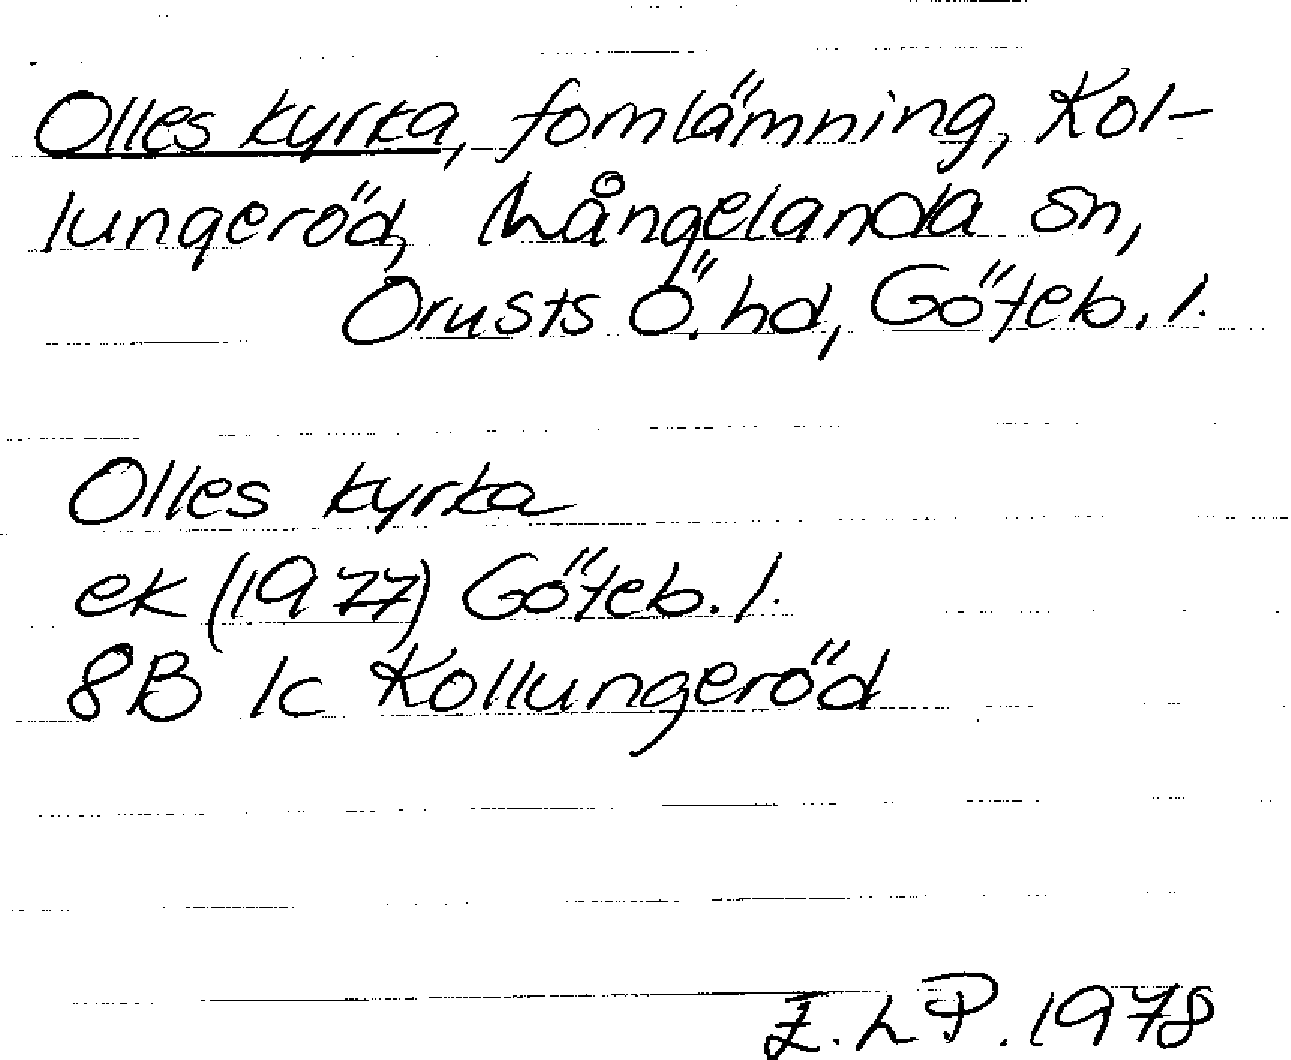 Olles kyrka, fornlämning, Kol-
lungeröd, Långelanda sn,
Orusts Ö. hd, Göteb. l.
Olles kyrka
ek (1977) Göteb. l.
8B 1c Kollungeröd
E.LP. 1978